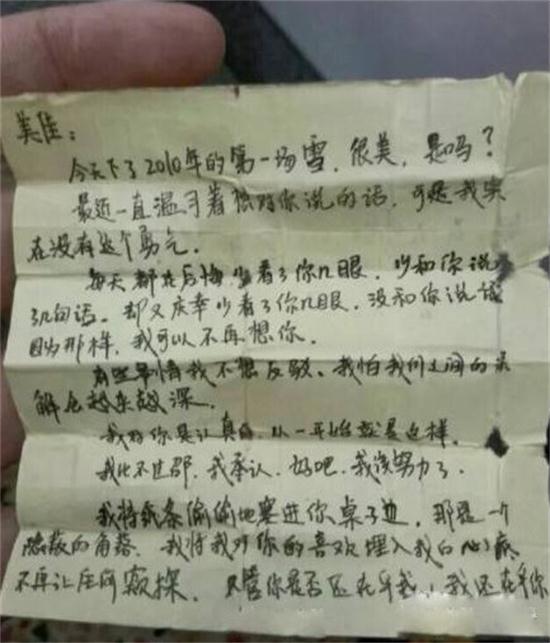 美佳：
今天下了2010年的第一场雪，很美，是吗？
最近一直温习着想对你说的话，可是我实
在没有这个勇气。
每天都在后悔少看了你几眼，少和你说
了几句话。却又庆幸少看了你几眼，没和你说话
因为那样，我可以不再想你。
有些事情我不想反驳、我怕我们之间的误
解会越来越深。
我对你是认真的，从一开始就是这样。
我比不过邵，我承认，好吧，我该努力了。
我将纸条偷偷地塞进你桌子边，那是一个
隐蔽的角落，我将我对你的喜欢埋入我的心底
不再让任何窥探，不管你是否还在乎我，我还在乎你